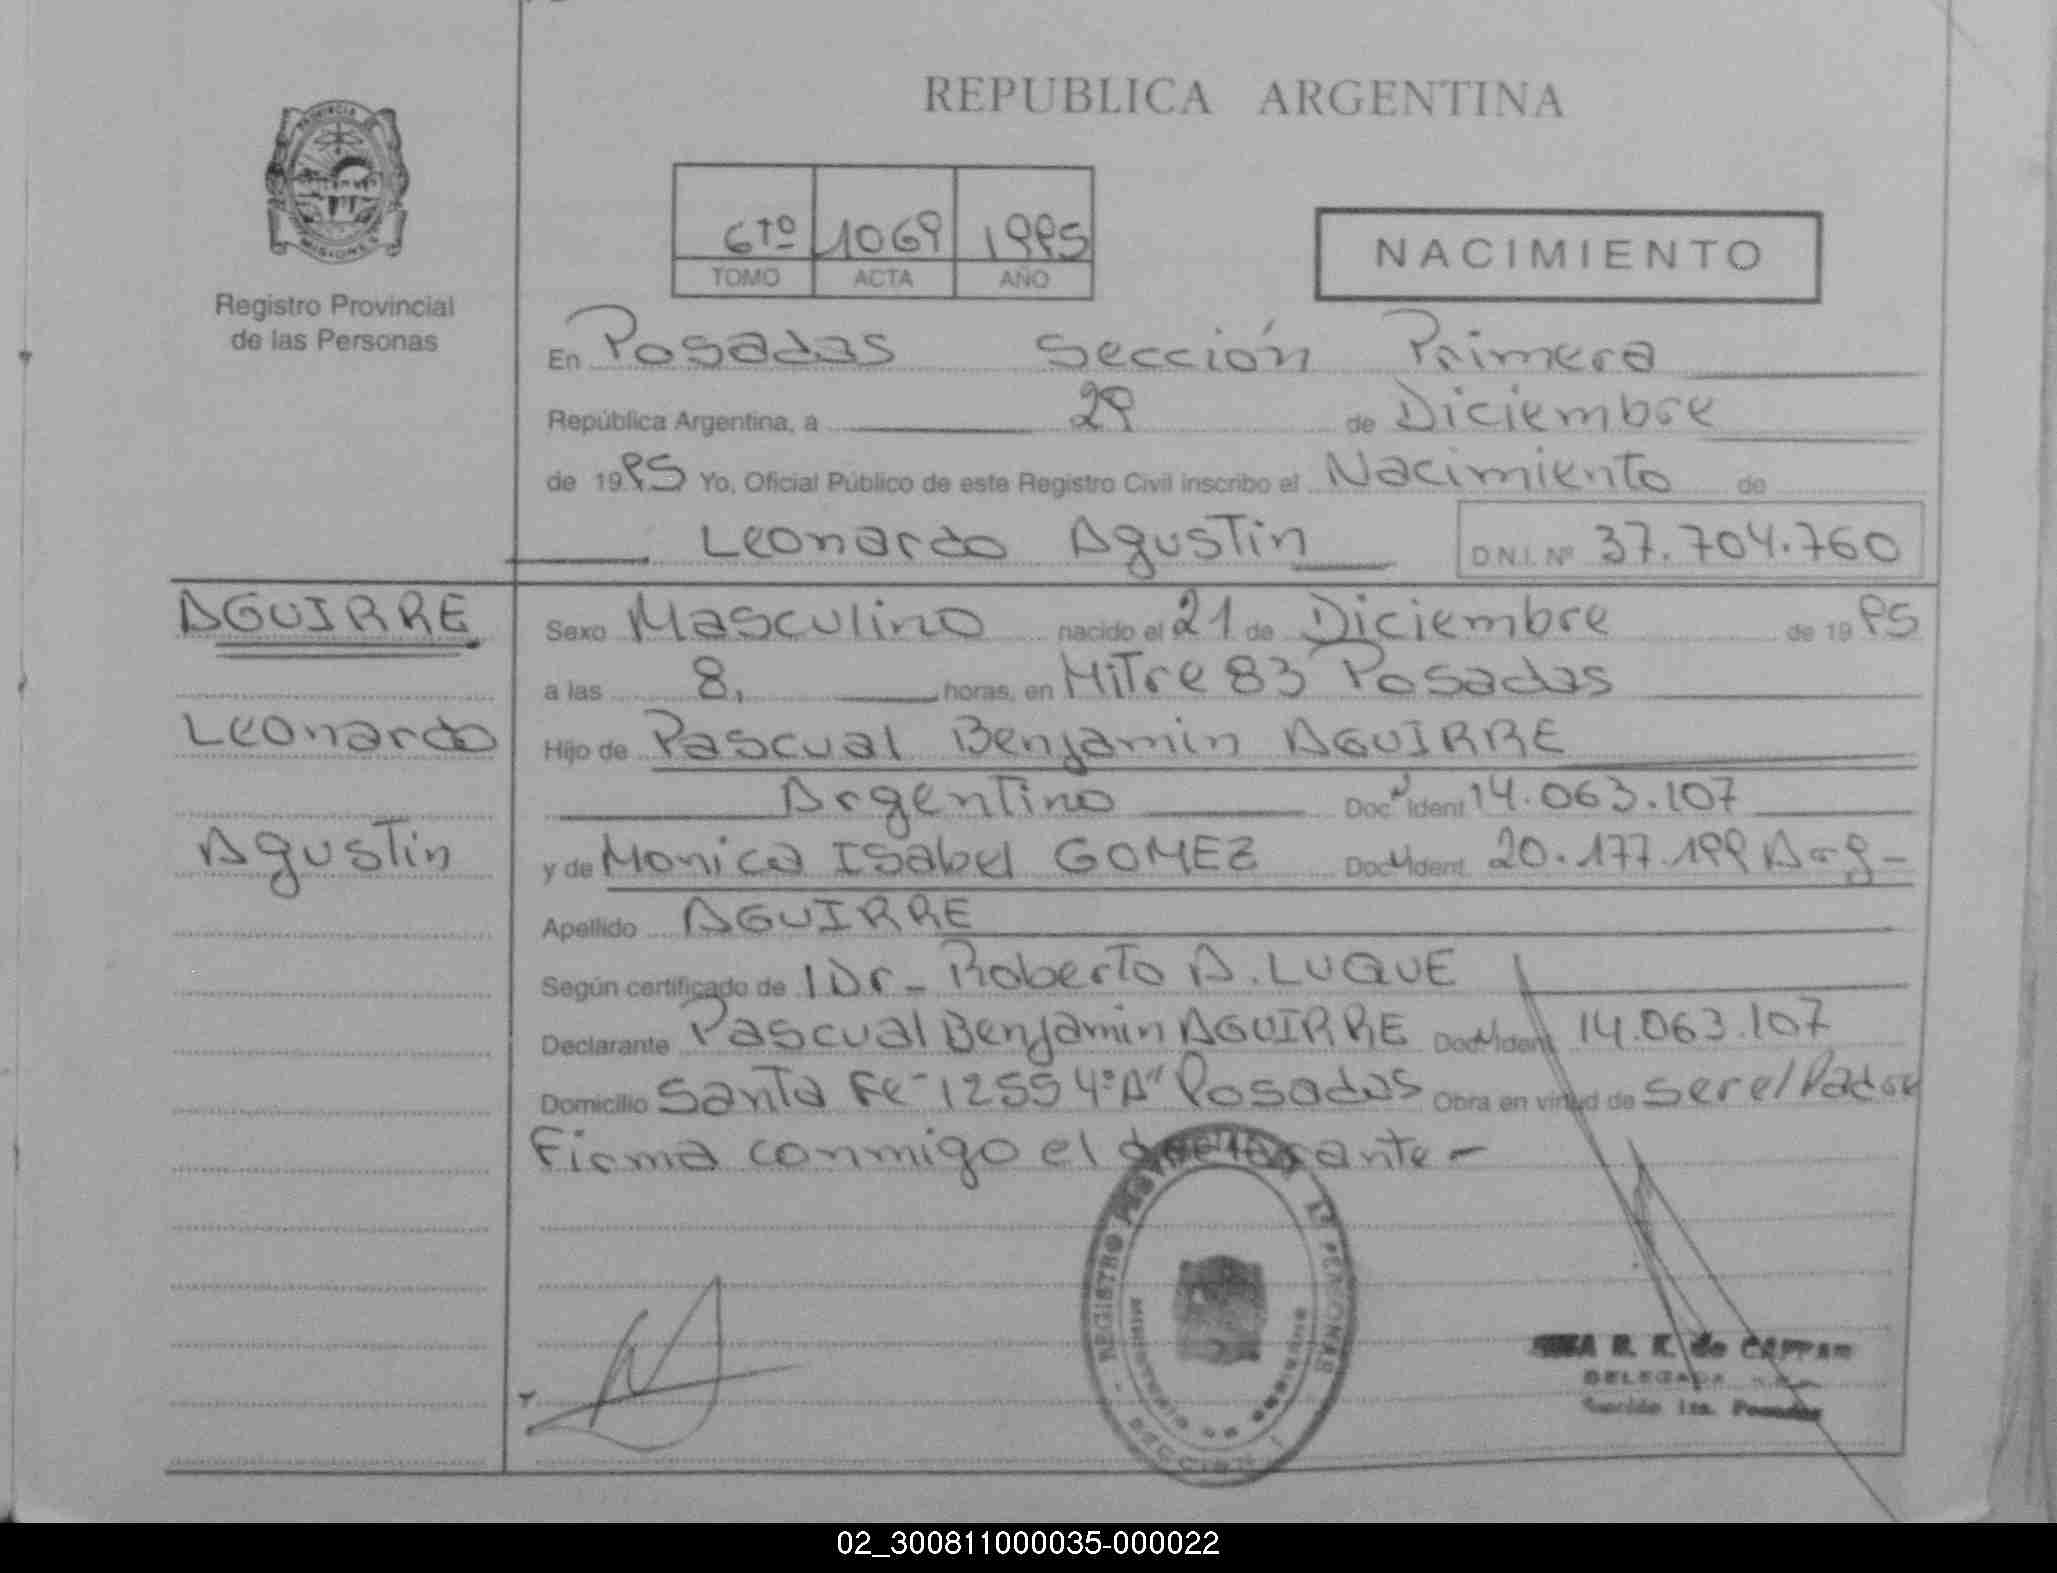 REPUBLICA ARGENTINA
PROVINCIA
MISIONES
Registro Provincial
de las Personas
6to 1069 1995
TOMO ACTA AÑO
NACIMIENTO
En Posadas Sección Primera
República Argentina, a 29 de Diciembre
de 1995 Yo, Oficial Público de este Registro Civil inscribo el Nacimiento de
Leonardo Agustin D.N.I. Nº 37.704.760
AGUIRRE
Leonardo
Agustin
Sexo Masculino nacido el 21 de Diciembre de 1995
a las 8, horas, en Mitre 83 Posadas
Hijo de Pascual Benjamin AGUIRRE
Argentino Doc N Ident 14.063.107
y de Monica Isabel GOMEZ Doc N Ident. 20.177.199 Arg-
Apellido AGUIRRE
Según certificado de 1 Dr- Roberto A. LUQUE
Declarante Pascual Benjamin AGUIRRE Doc N Ident 14.063.107
Domicilio Santa Fe-1255 4º"A" Posadas Obra en virtud de ser el Padre
Firma conmigo el declarante-
REGISTRO PERSONAS
MINISTERIO DE GOBIERNO
SECCION 1
R. K. de
DELEGADA
Sección 1ra. Posadas
02_300811000035-000022